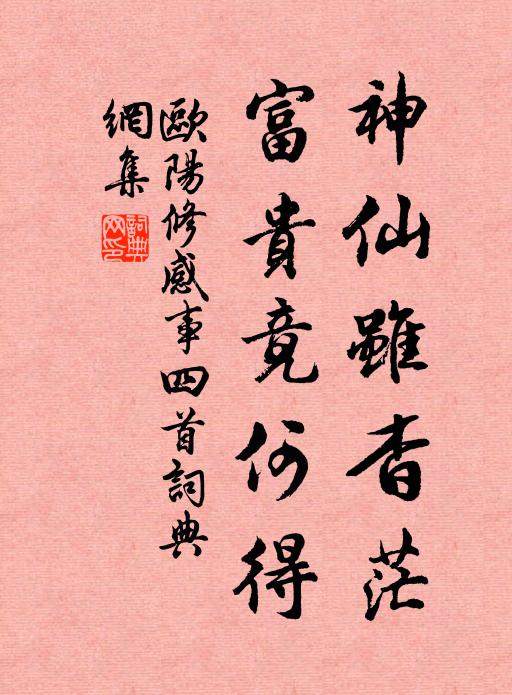 神仙雖杳茫
富貴竟何得
歐陽修感事四首詞典
網集
詞典网印